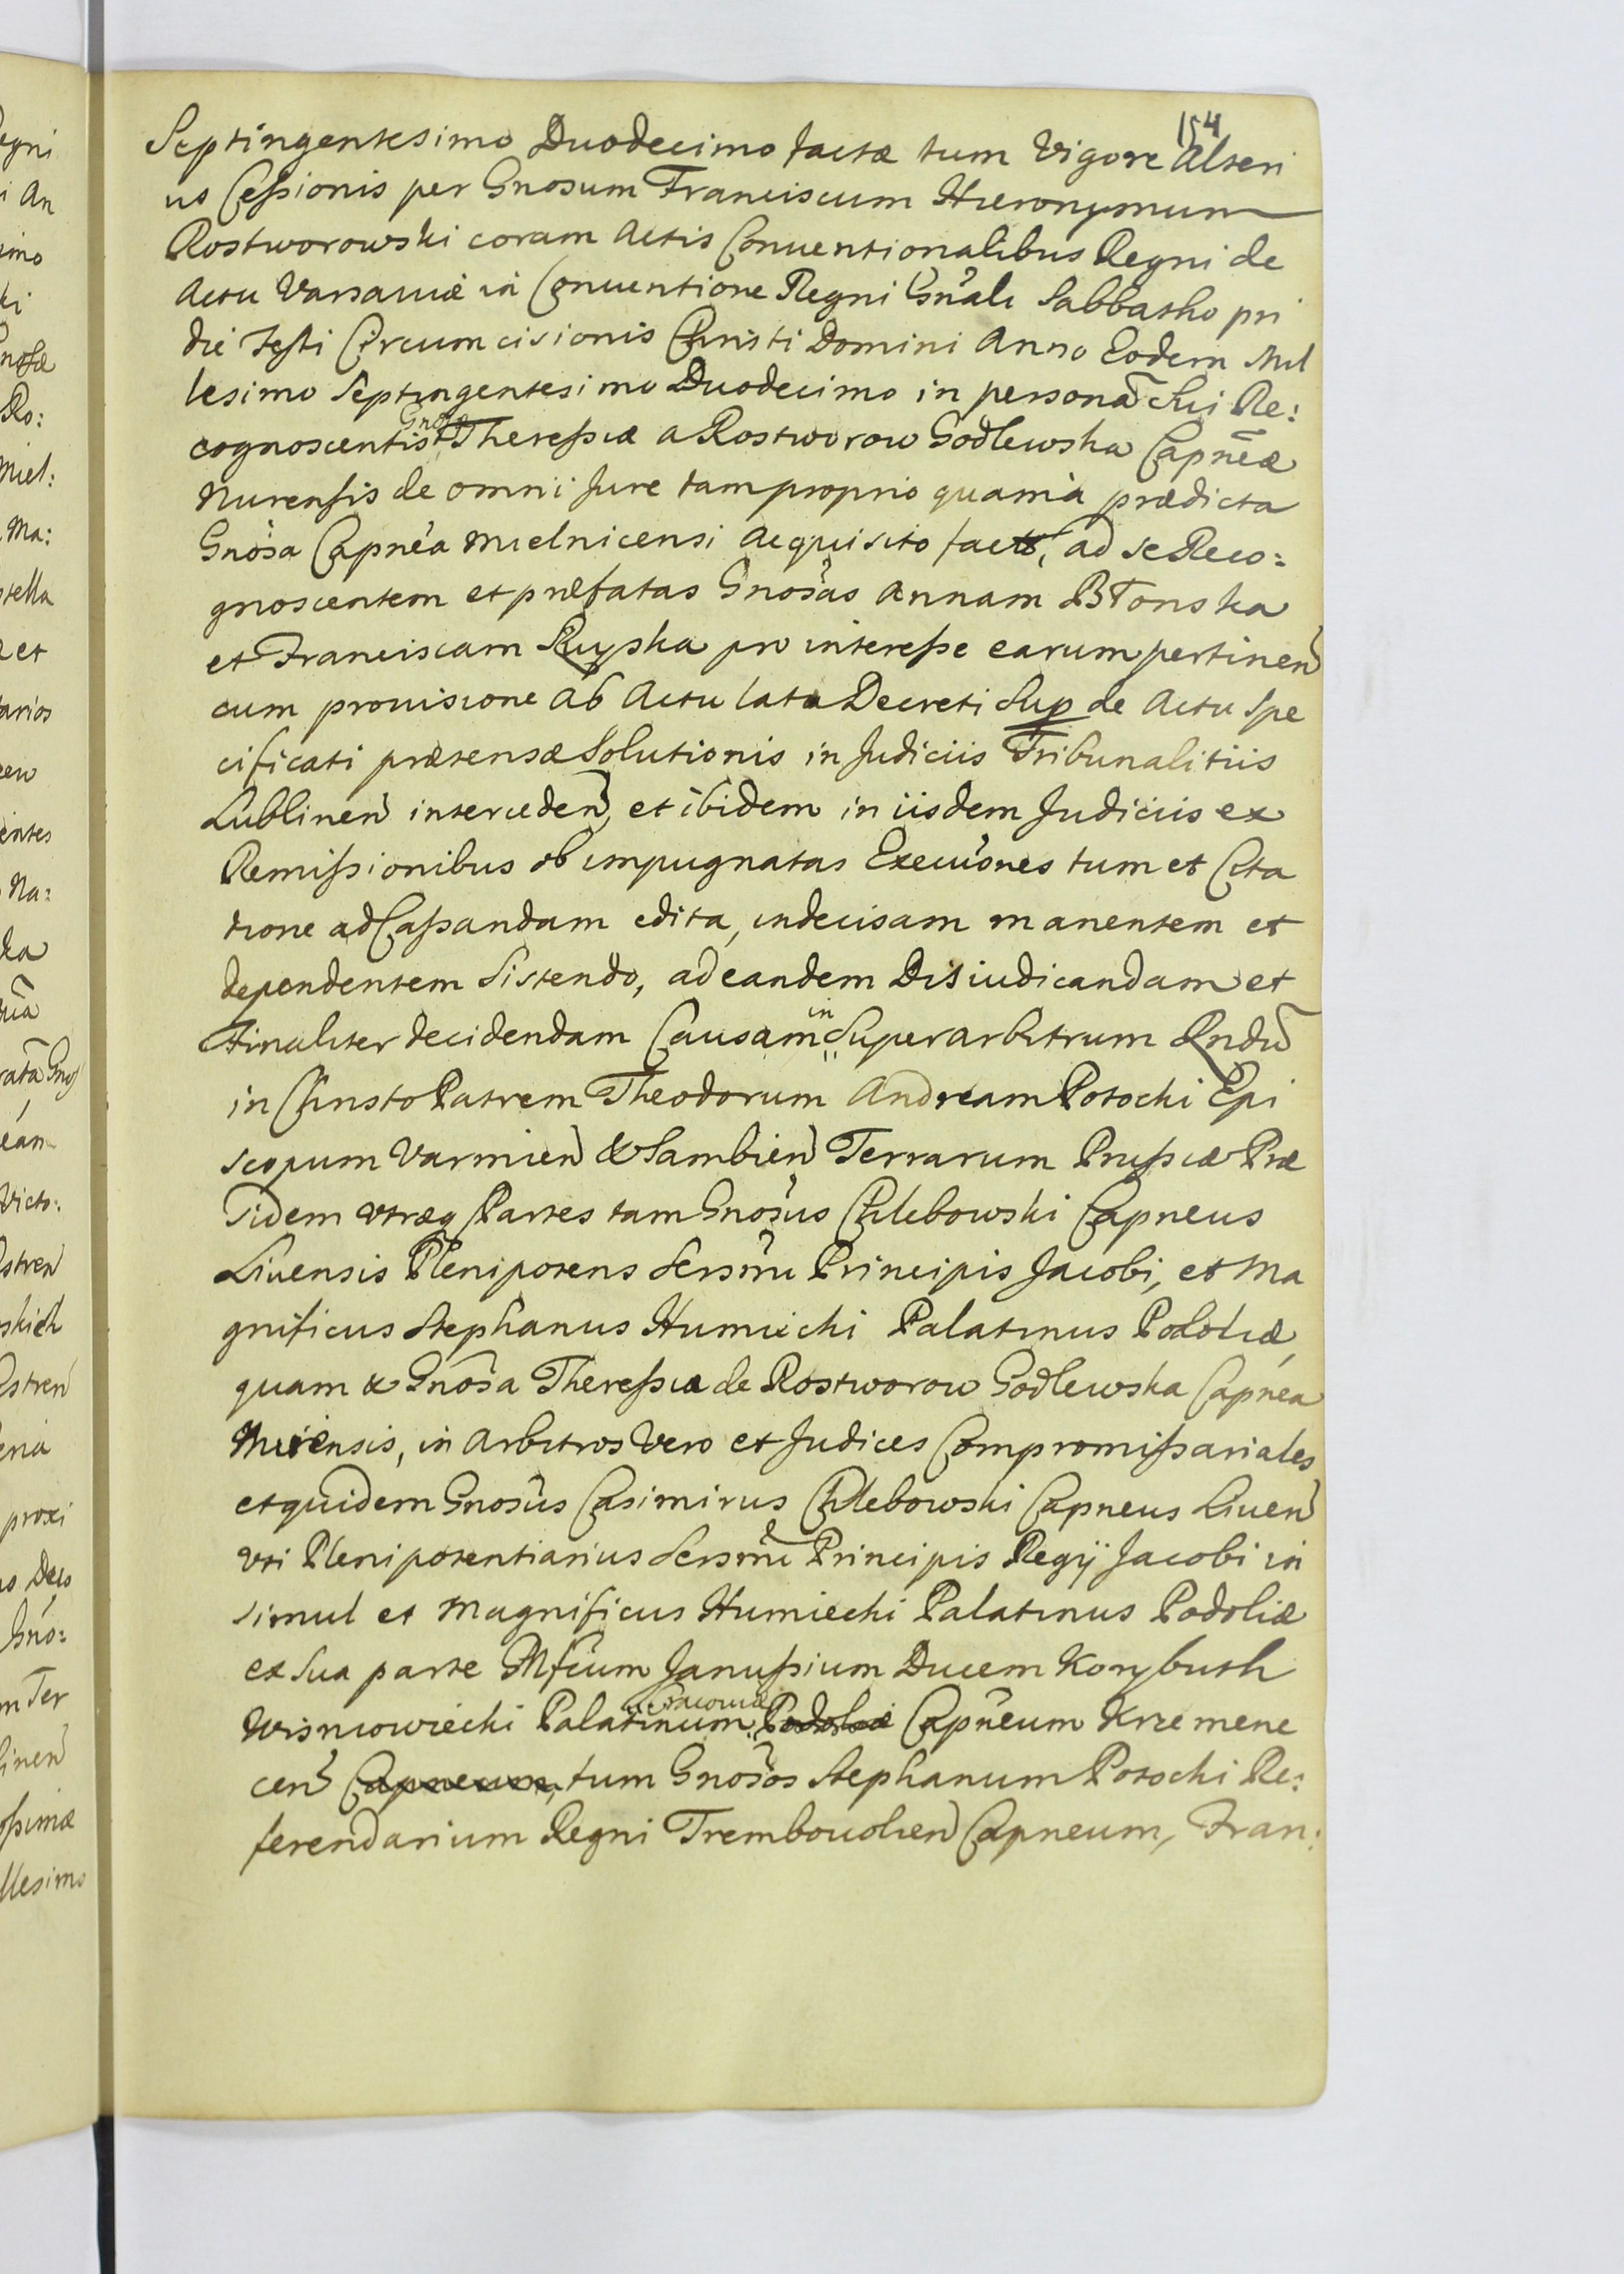 154
Septingentesimo Duodecimo factæ tum Vigore Alteri
us Cessionis per Gnosum Franciscum Hieronymum
Rostworowski coram Actis Conventionalibus Regni de
Actu Varsaviæ in Conventione Regni Gnãli Sabbatho pri
die Festi Circumcisionis Christi Domini Anno Eodem Mil
lesimo Septingentesimo Duodecimo in personã Sui Re:
cognoscentis Gnosæ Theressiæ a Rostworow Godlewska Capneæ
Nurensis de omni Jure tam proprio quam à prædicta
Gnosa Capnea Mielnicensi Acquisito factæ, ad se Reco:
gnoscentem et præfatas Gnosas Annam Błonska
et Franciscam Rupska pro interesse earum pertinen
cum provisione ab Actu lata Decreti Sup de Actu Spe
cificati prætensæ Solutionis in Judiciis Tribunalitiis
Lublinen interceden, et ibidem in iisdem Judiciis ex
Remissionibus ob impugnatas Execuones tum et Cita
tione ad Cassandam edita, indecisam manentem et
dependentem Sistendo, ad eandem Disiudicandam et
Finaliter decidendam Causam in Superarbitrum Rndũ
in Christo Patrem Theodorum Andream Potocki Epi
scopum Varmien & Sambien Terrarum Prussiæ Præ
sidem utræq Partes tam Gnosus Chlebowski Capneus
Livensis Plenipotens Sersmi Principis Jacobi, et Ma
gnificus Stephanus Humiecki Palatinus Podoliæ,
quam & Gnosa Theressia de Rostworow Godlewska Capnea
Nurensis, in Arbitros Vero et Judices Compromissariales
et quidem Gnosus Casimirus Chlebowski Capneus Liven
uti Plenipotentiarius Sersmi Principis Regij Jacobi in
simul et Magnificus Humiecki Palatinus Podoliæ
ex Sua parte Mfcum Janussium Ducem Korybuth
Wisniowiecki Palatinum Cracoviæ Podoliæ Capneum Krzemene
cen Capneum, tum Gnosos Stephanum Potocki Re:
ferendarium Regni Trembovolien Capneum, Fran: